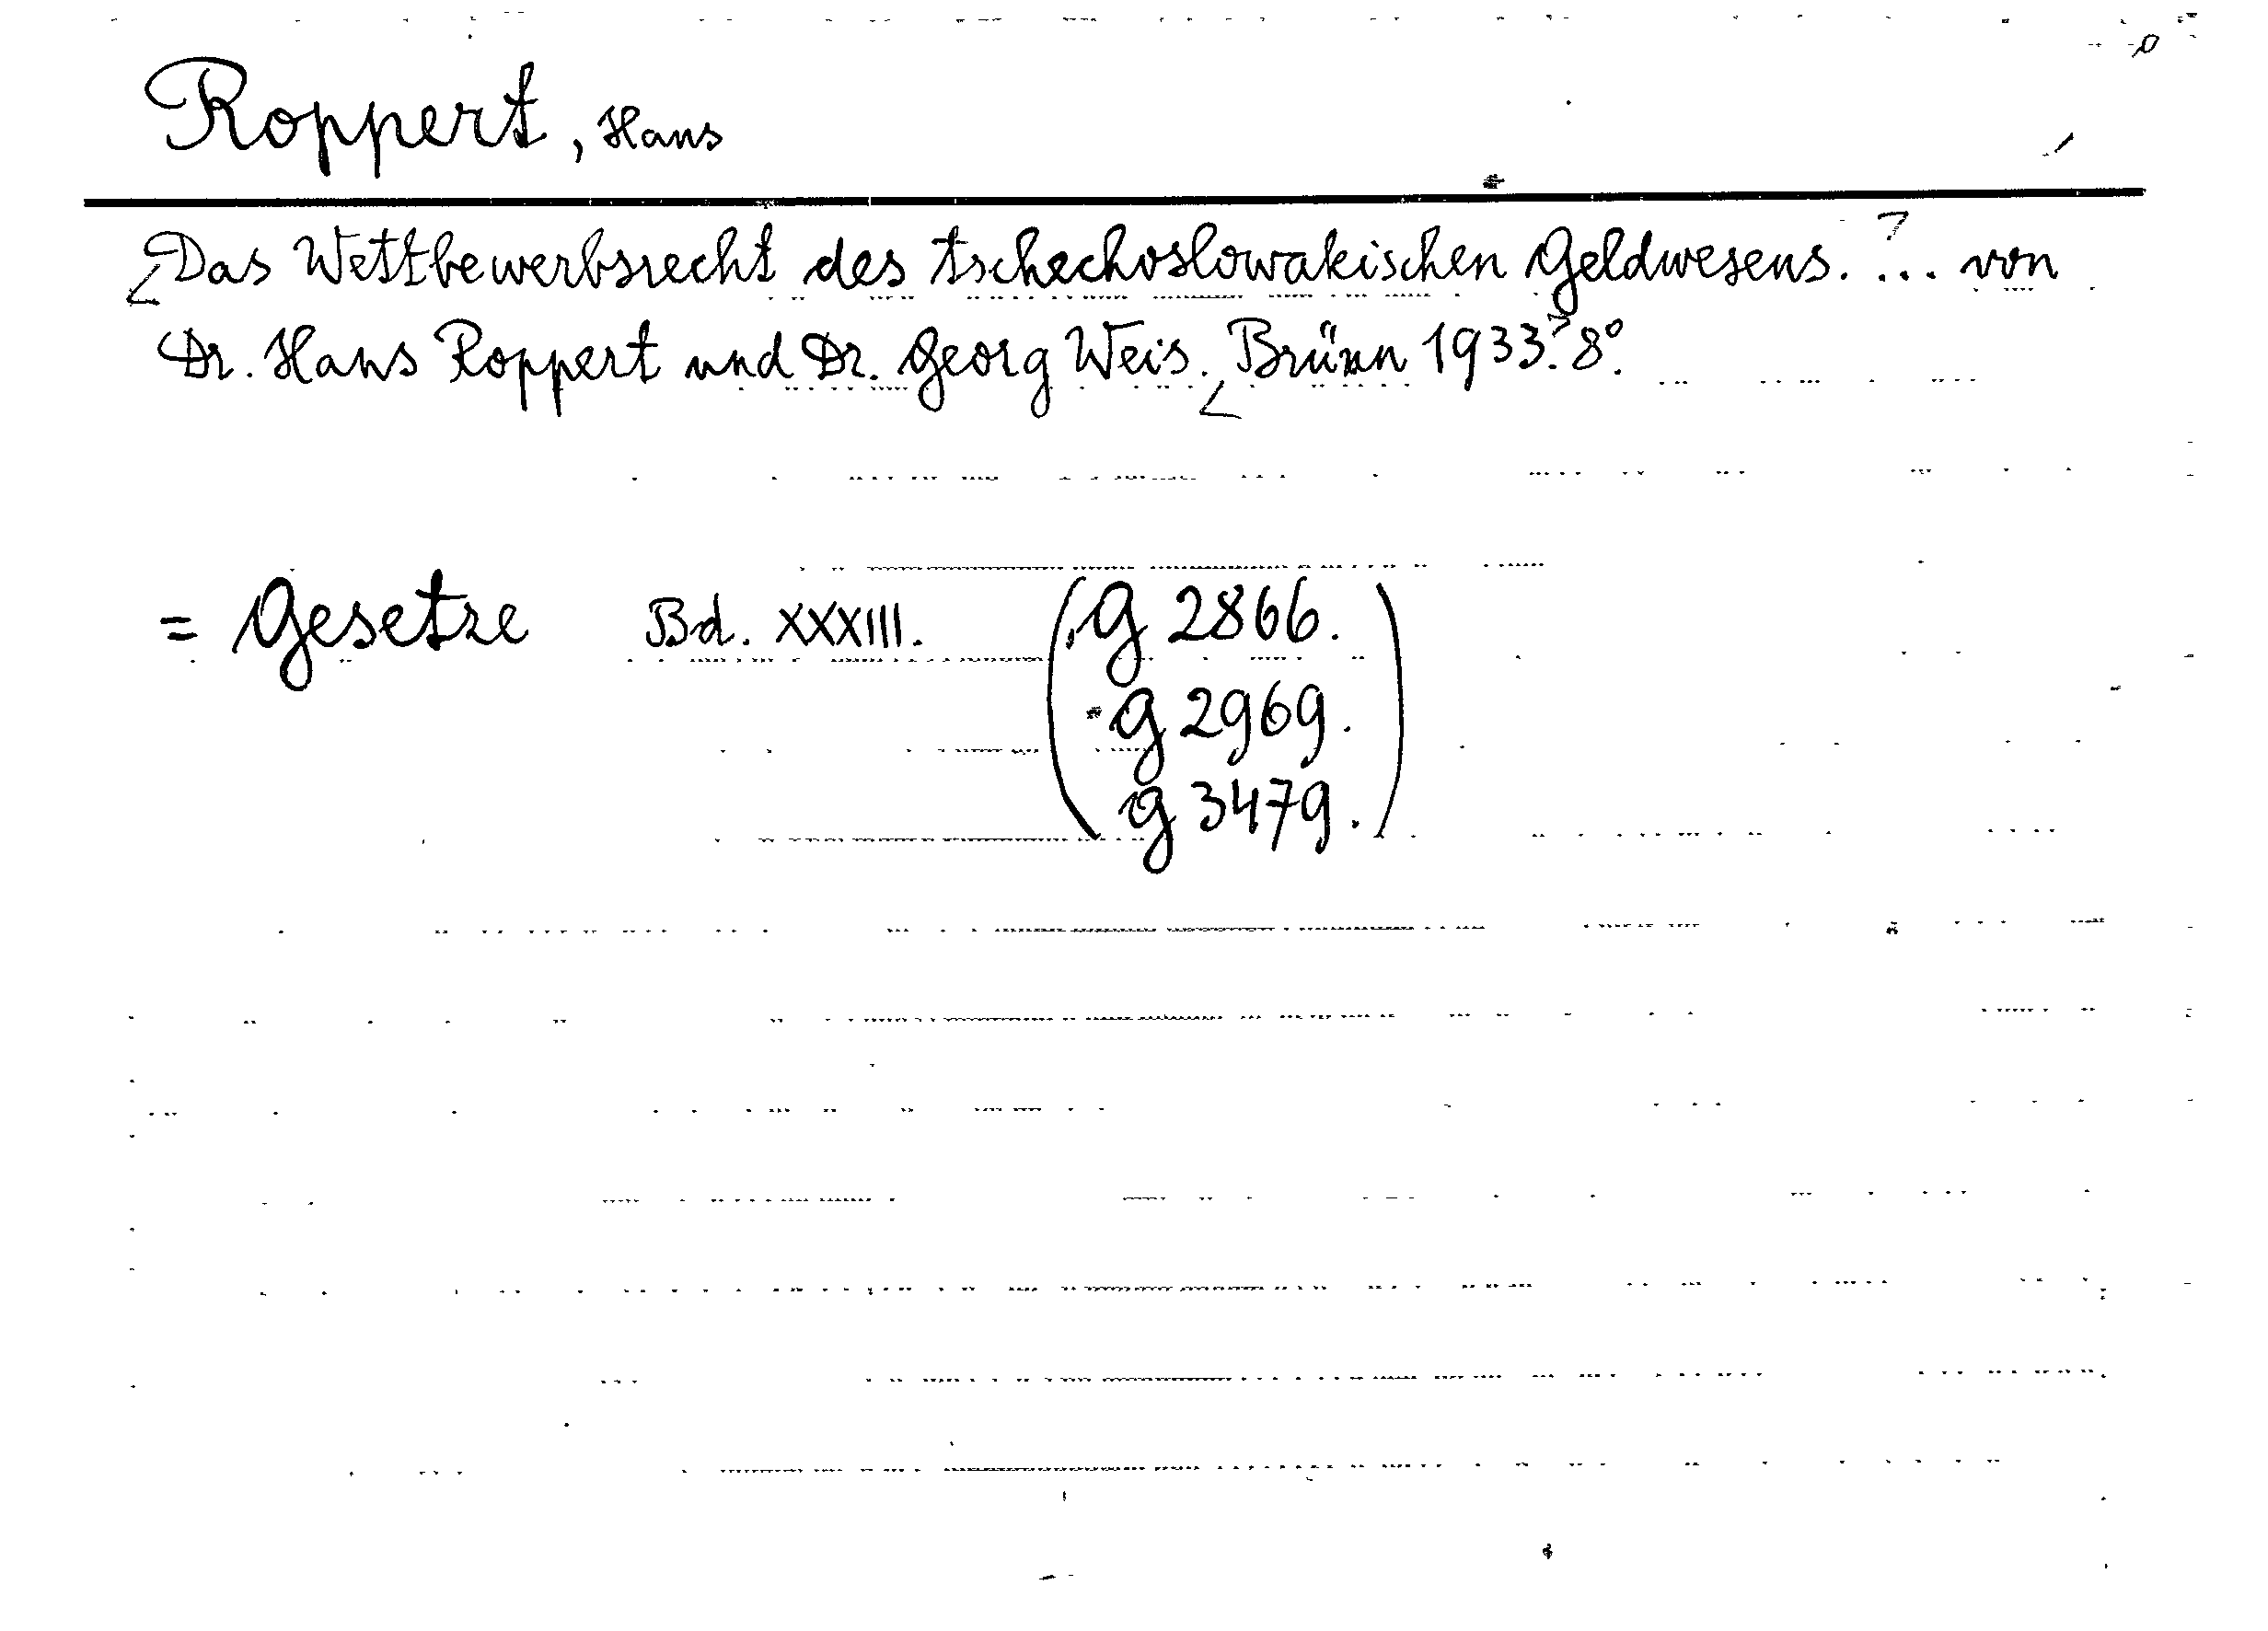 Roppert, Hans
Das Wettbewerbsrecht des tschechoslowakischen Geldwesens. ... von
Dr. Hans Roppert und Dr. Georg Weis. Brünn 1933. 8°.
= Gesetze Bd. XXXIII. (G 2866.
G 2969.
G 3479.)